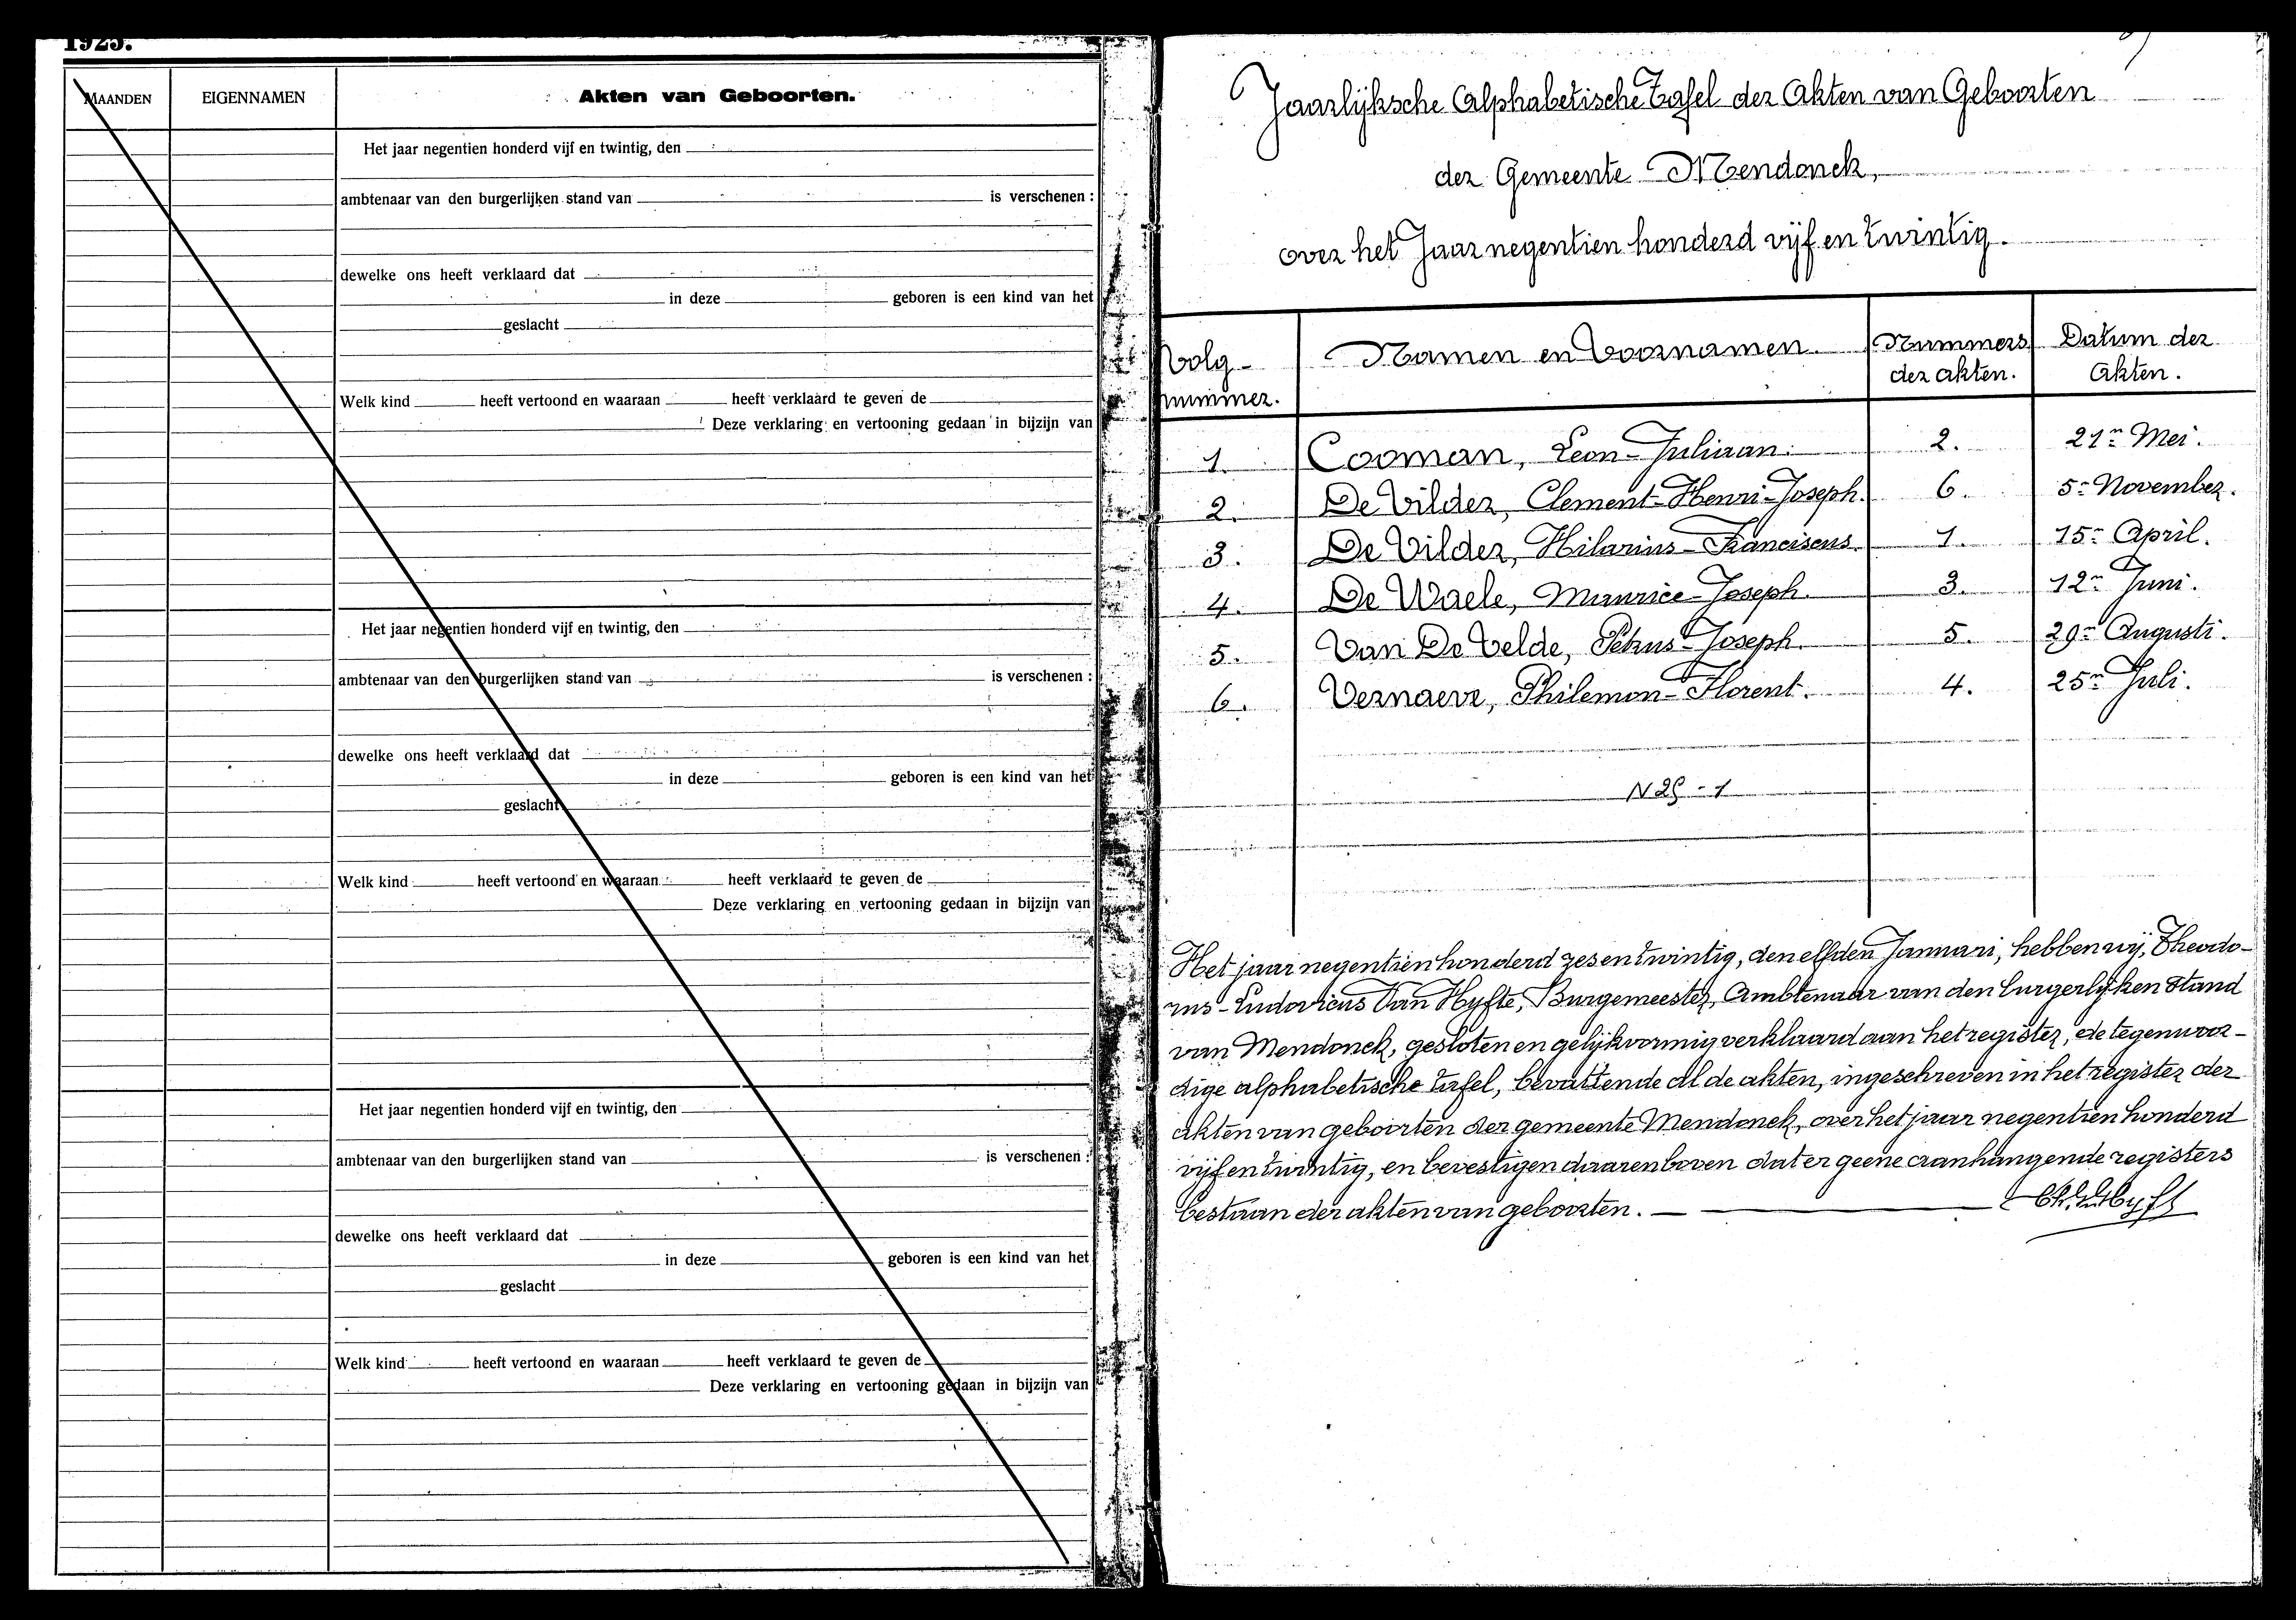 1925.
MAANDEN EIGENNAMEN Akten van Geboorten.
Het jaar negentien honderd vijf en twintig, den
ambtenaar van den burgerlijken stand van is verschenen :
dewelke ons heeft verklaard dat
in deze geboren is een kind van het
geslacht
Welk kind heeft vertoond en waaraan heeft verklaard te geven de
Deze verklaring en vertooning gedaan in bijzijn van
Het jaar negentien honderd vijf en twintig, den
ambtenaar van den burgerlijken stand van is verschenen :
dewelke ons heeft verklaard dat
in deze geboren is een kind van het
geslacht
Welk kind heeft vertoond en waaraan heeft verklaard te geven de
Deze verklaring en vertooning gedaan in bijzijn van
Het jaar negentien honderd vijf en twintig, den
ambtenaar van den burgerlijken stand van is verschenen :
dewelke ons heeft verklaard dat
in deze geboren is een kind van het
geslacht
Welk kind heeft vertoond en waaraan heeft verklaard te geven de
Deze verklaring en vertooning gedaan in bijzijn van
Jaarlijksche Alphabetische Tafel der Akten van Geboorten
der Gemeente Mendonck,
over het Jaar negentien honderd vijf en twintig.
Volg-nummer. Namen en Voornamen. Nummers der akten. Datum der Akten.
1. Cooman, Leon-Juliaan. 2. 21n Mei.
2. De Vilder, Clement-Henri-Joseph. 6. 5n November.
3. De Vilder, Hilarius-Franciscus. 1. 15n April.
4. De Waele, Maurice-Joseph. 3. 12n Juni.
5. Van De Velde, Petrus-Joseph. 5. 29n Augusti.
6. Vernaeve, Philemon-Florent. 4. 25n Juli.
Het jaar negentien honderd zes en twintig, den elfden Januari, hebben wij, Theodo-
rus-Ludovicus Van Hyfte, Burgemeester, Ambtenaar van den burgerlijken stand
van Mendonck, gesloten en gelijkvormig verklaard aan het register, de tegenwoor-
dige alphabetische tafel, bevattende al de akten, ingeschreven in het register der
akten van geboorten der gemeente Mendonck, over het jaar negentien honderd
vijf en twintig, en bevestigen daarenboven dat er geene aanhangende registers
bestaan der akten van geboorten.